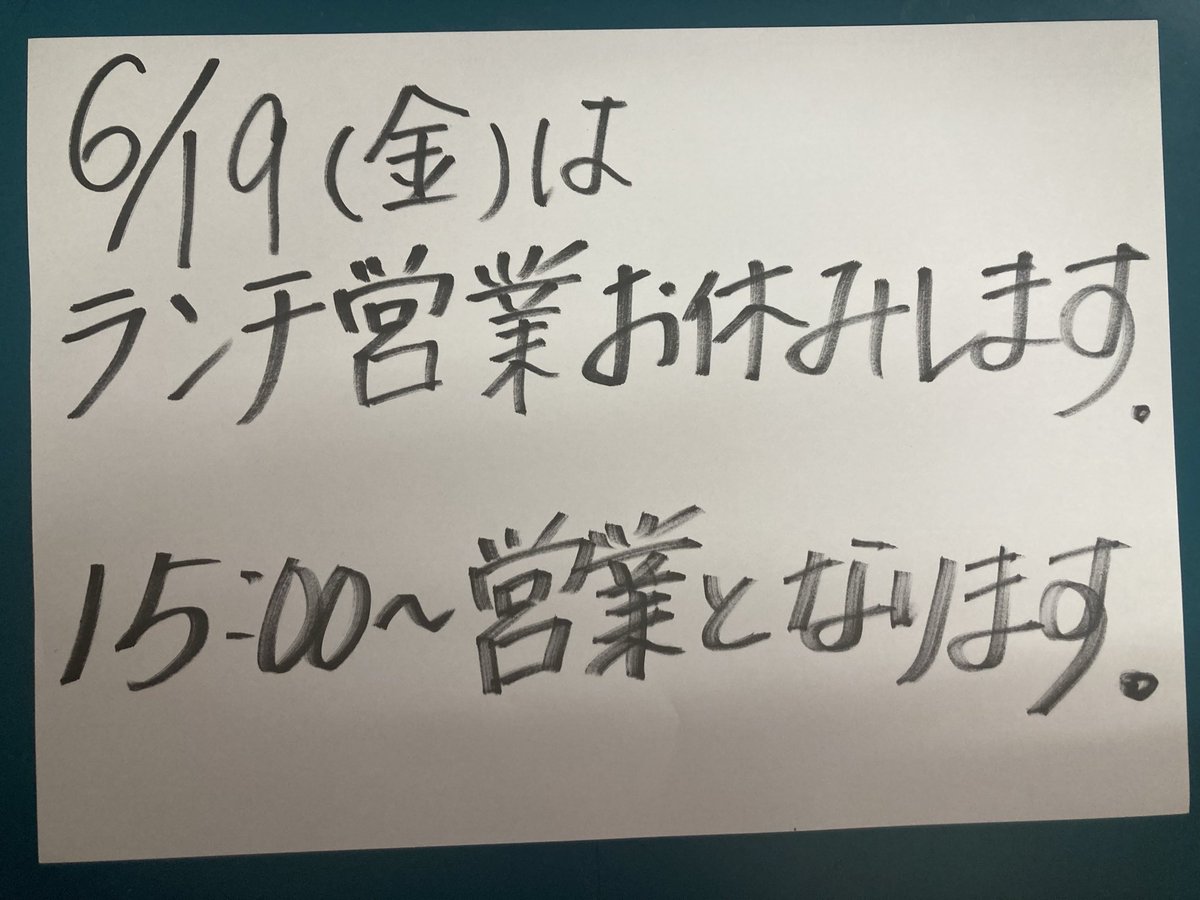 6/19(金)は
ランチ営業お休みします.
15:00〜営業となります.